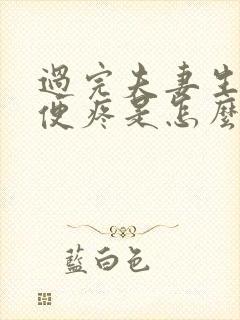 過完夫妻生
便疼是怎麼
藍白色